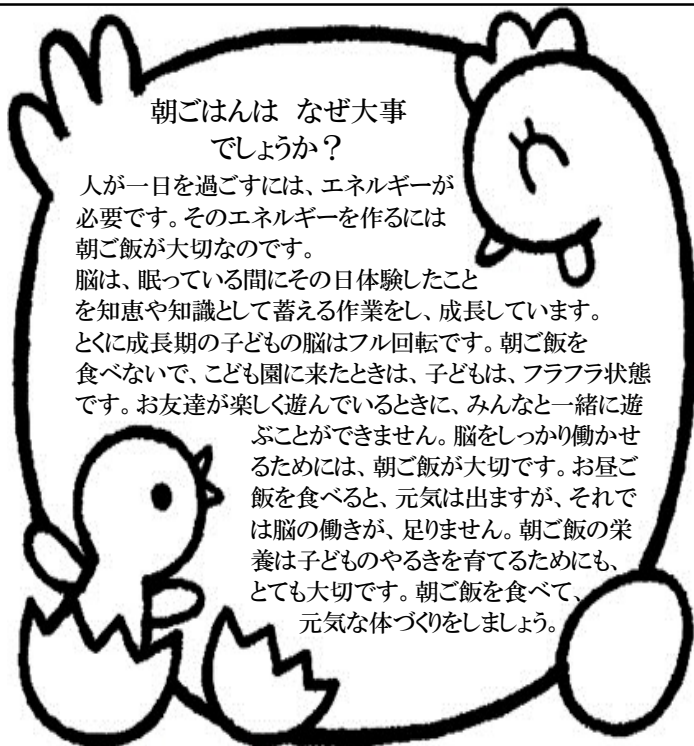 朝ごはんは なぜ大事
でしょうか？
人が一日を過ごすには、エネルギーが
必要です。そのエネルギーを作るには
朝ご飯が大切なのです。
脳は、眠っている間にその日体験したこと
を知恵や知識として蓄える作業をし、成長しています。
とくに成長期の子どもの脳はフル回転です。朝ご飯を
食べないで、こども園に来たときは、子どもは、フラフラ状態
です。お友達が楽しく遊んでいるときに、みんなと一緒に遊
ぶことができません。脳をしっかり働かせ
るためには、朝ご飯が大切です。お昼ご
飯を食べると、元気は出ますが、それで
は脳の働きが、足りません。朝ご飯の栄
養は子どものやるきを育てるためにも、
とても大切です。朝ご飯を食べて、
元気な体づくりをしましょう。